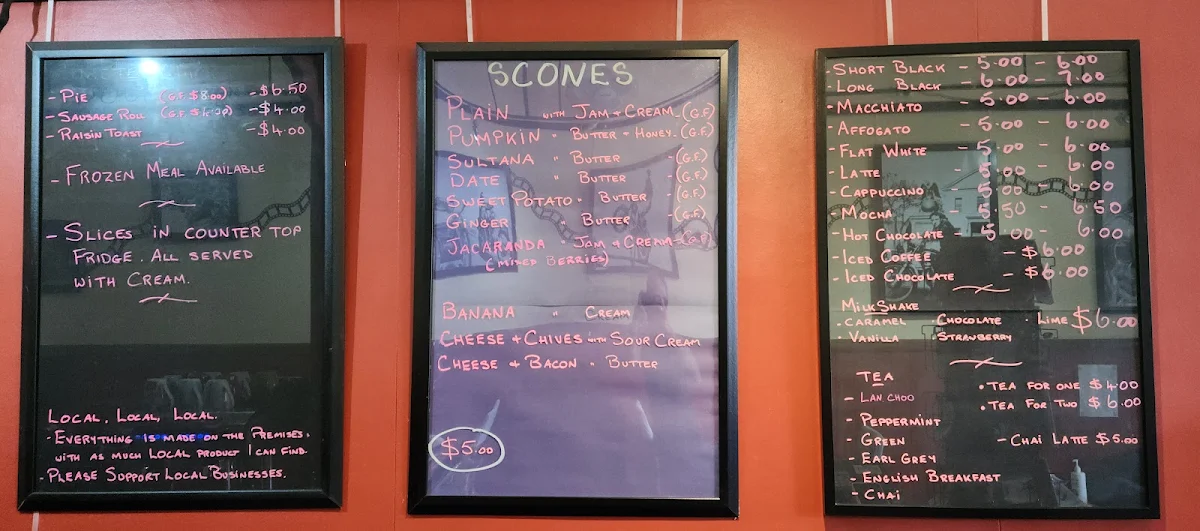 - PIE (G.F. $8.00) - $6.50
- SAUSAGE ROLL (G.F. $ ) - $4.00
- RAISIN TOAST - $4.00
- FROZEN MEAL AVAILABLE
- SLICES IN COUNTER TOP
FRIDGE. ALL SERVED
WITH CREAM.
LOCAL, LOCAL, LOCAL.
- EVERYTHING IS MADE ON THE PREMISES,
WITH AS MUCH LOCAL PRODUCT I CAN FIND.
- PLEASE SUPPORT LOCAL BUSINESSES.
SCONES
PLAIN WITH JAM + CREAM - (G.F)
PUMPKIN " BUTTER + HONEY - (G.F)
SULTANA " BUTTER - (G.F)
DATE " BUTTER - (G.F)
SWEET POTATO " BUTTER (G.F)
GINGER " BUTTER - (G.F)
JACARANDA " JAM + CREAM - (G.F)
(MIXED BERRIES)
BANANA " CREAM
CHEESE + CHIVES WITH SOUR CREAM
CHEESE + BACON " BUTTER
$5.00
- SHORT BLACK - 5.00 - 6.00
- LONG BLACK - 6.00 - 7.00
- MACCHIATO - 5.00 - 6.00
- AFFOGATO - 5.00 - 6.00
- FLAT WHITE - 5.00 - 6.00
- LATTE - 5.00 - 6.00
- CAPPUCCINO - 5.00 - 6.00
- MOCHA - 5.50 - 6.50
- HOT CHOCOLATE - 5.00 - 6.00
- ICED COFFEE - $6.00
- ICED CHOCOLATE - $6.00
MILKSHAKE
· CARAMEL · CHOCOLATE · LIME $6.00
· VANILLA STRAWBERRY
TEA
- LAN CHOO
- PEPPERMINT
- GREEN
- EARL GREY
- ENGLISH BREAKFAST
- CHAI
• TEA FOR ONE $4.00
• TEA FOR TWO $6.00
- CHAI LATTE $5.00